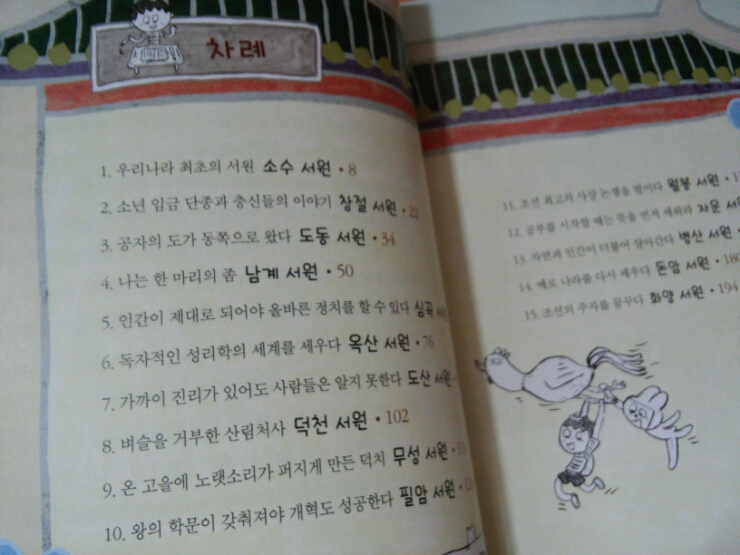 차례
1. 우리나라 최초의 서원 소수 서원 • 8
2. 소년 임금 단종과 충신들의 이야기 창절 서원 • 22
3. 공자의 도가 동쪽으로 왔다 도동 서원 • 34
4. 나는 한 마리의 좀 남계 서원 • 50
5. 인간이 제대로 되어야 올바른 정치를 할 수 있다 심곡
6. 독자적인 성리학의 세계를 세우다 옥산 서원 • 76
7. 가까이 진리가 있어도 사람들은 알지 못한다 도산 서원
8. 벼슬을 거부한 산림처사 덕천 서원 • 102
9. 온 고을에 노랫소리가 퍼지게 만든 덕치 무성 서원 •
10. 왕의 학문이 갖춰져야 개혁도 성공한다 필암 서원 •
11. 조선 최고의 사상 논쟁을 벌이다 월봉 서원 •
12. 공부를 시작할 때는 뜻을 먼저 세워라 자운 서원
13. 자연과 인간이 더불어 살아간다 병산 서원 •
14. 예로 나라를 다시 세우다 돈암 서원 • 180
15. 조선의 주자를 꿈꾸다 화양 서원 • 194